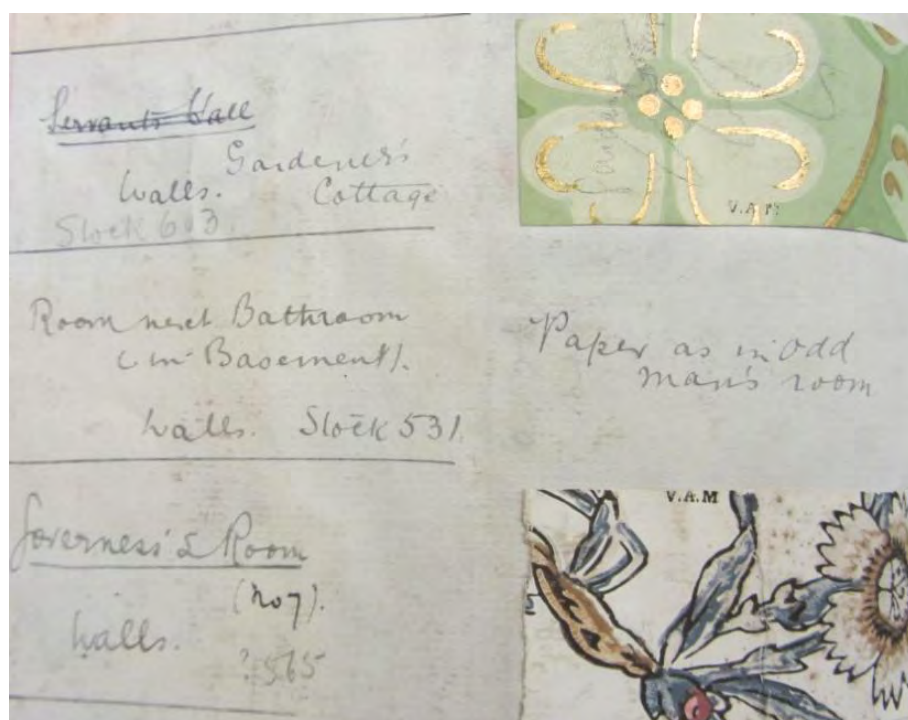 Servants Hall
Gardener's
Walls. Cottage
Stock 603.
V.A.M
Room next Bathroom
(in Basement).
Walls. Stock 531.
Paper as in odd
man's room
Governess's Room
(No 7).
Walls.
? 565
V.A.M